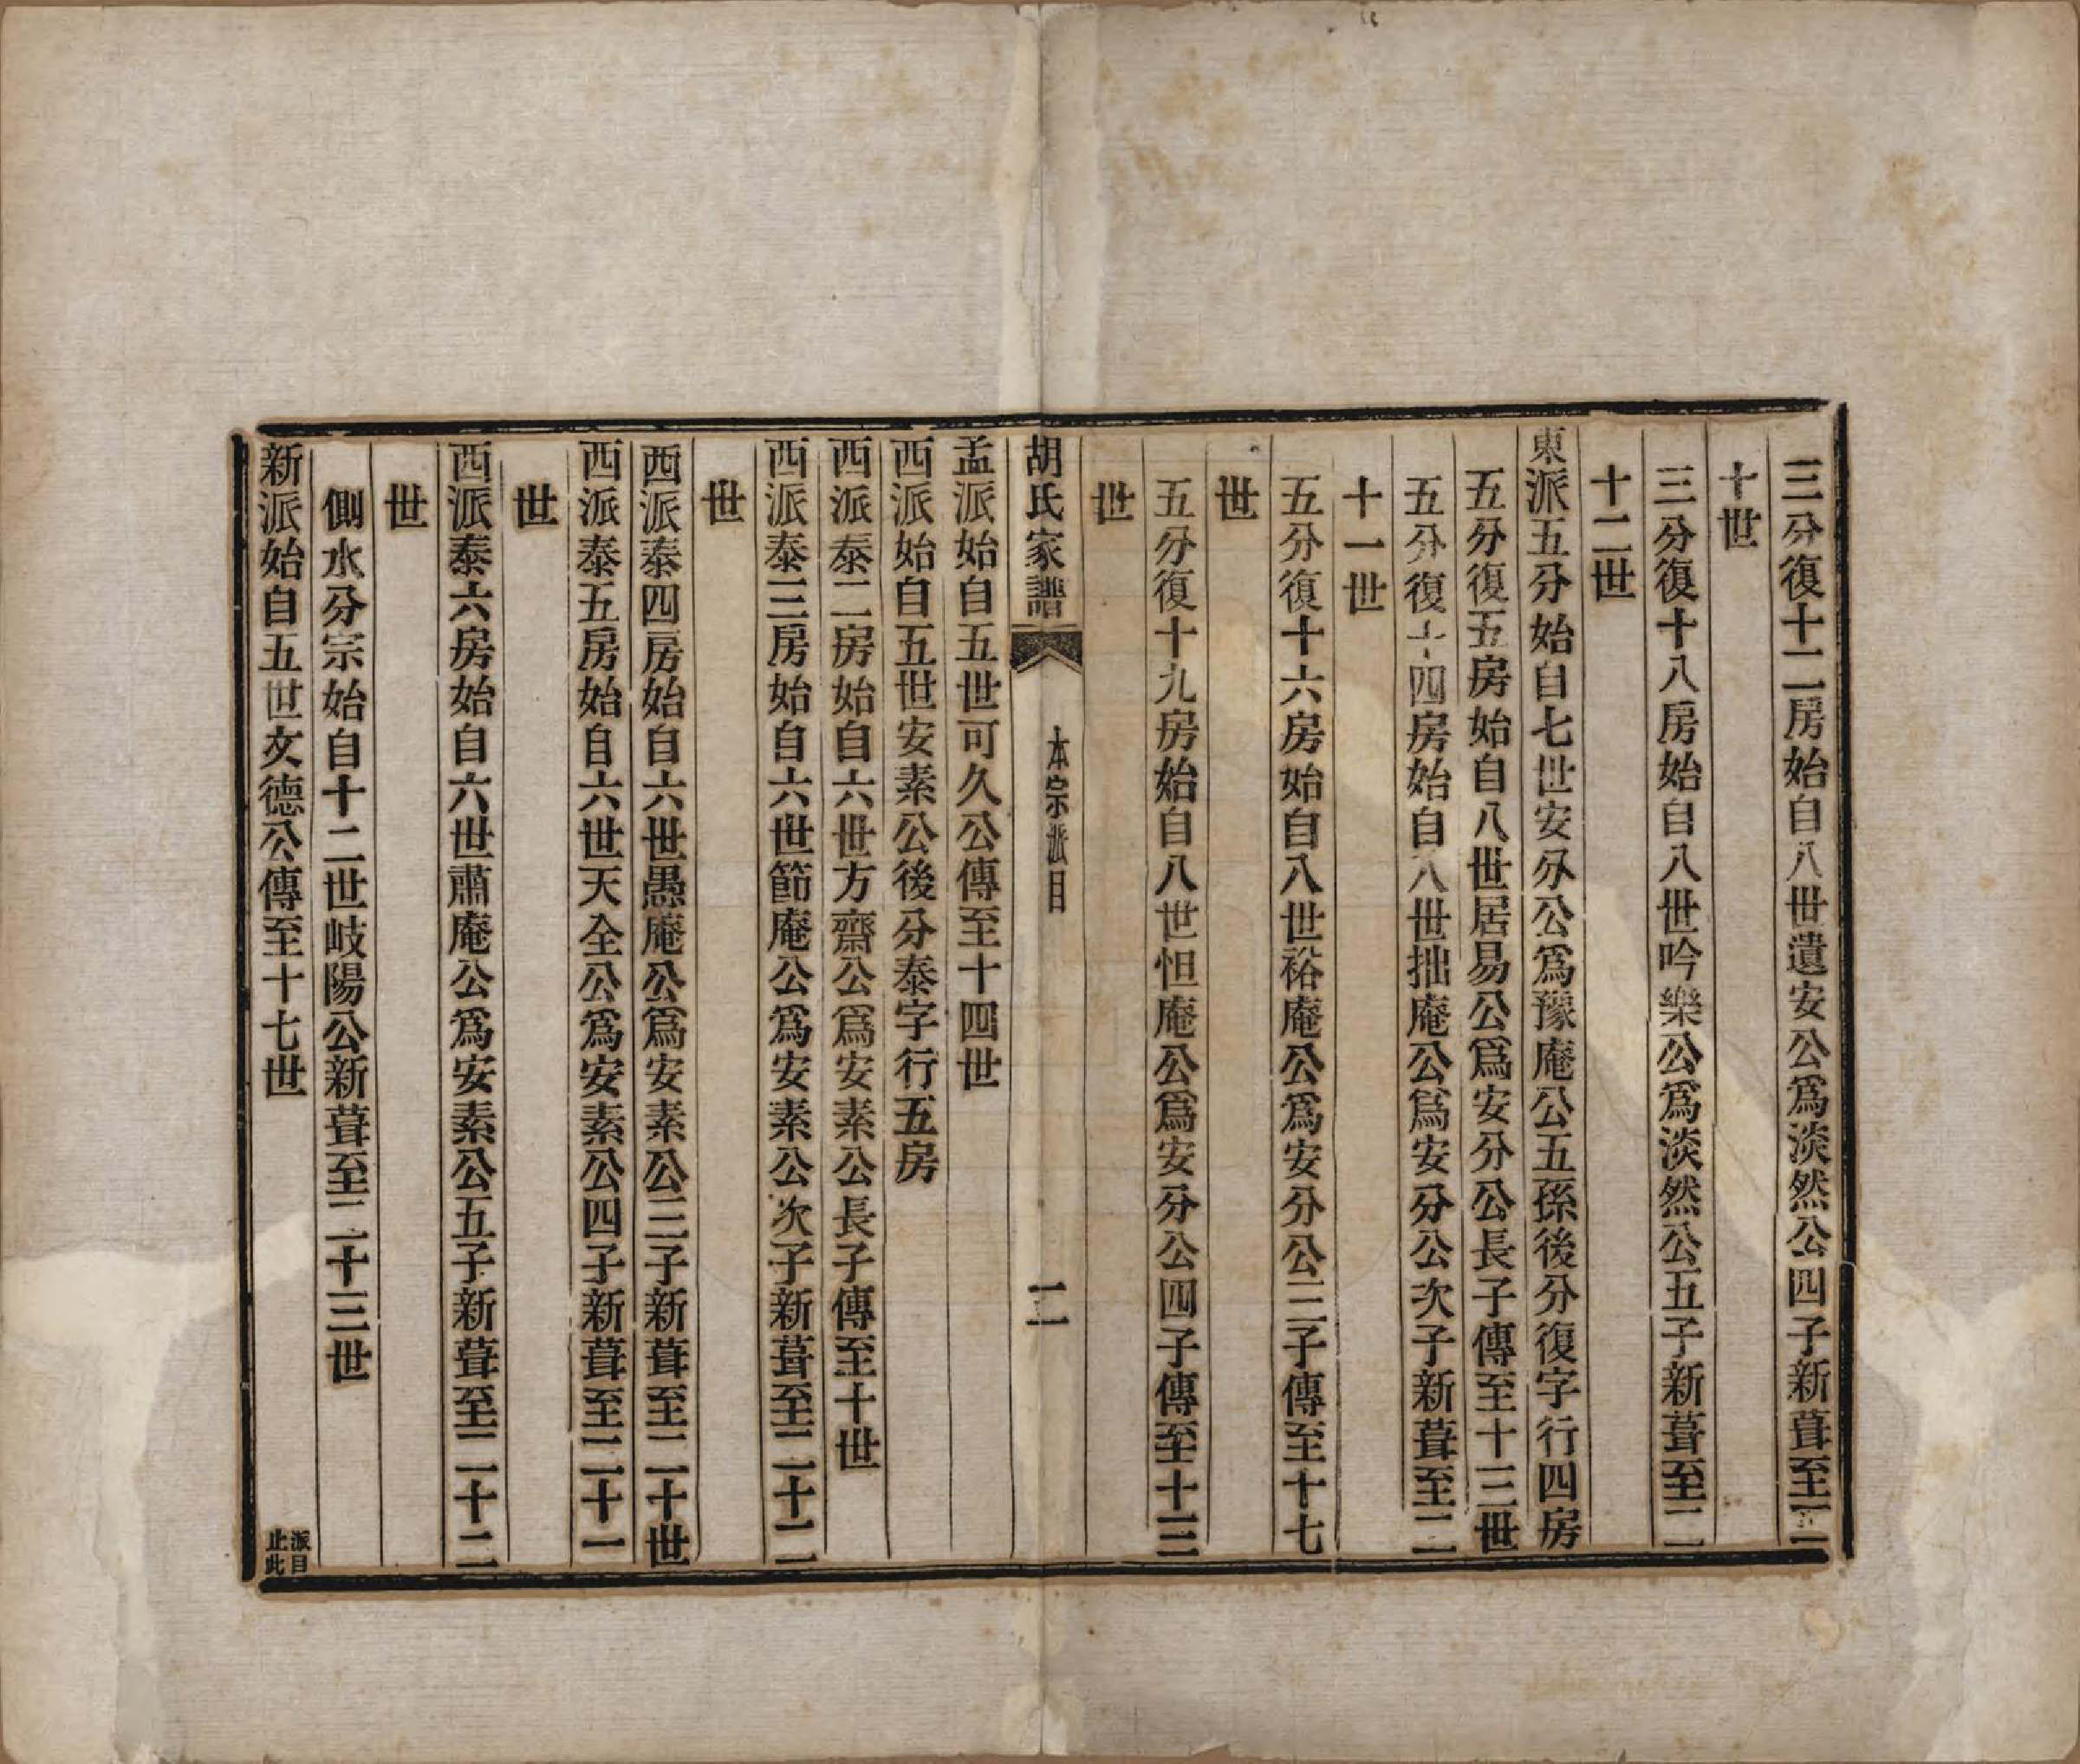 三分復十二房始自八世遺安公爲淡然公四子新葺至二
十世
三分復十八房始自八世吟樂公爲淡然公五子新葺至二
十二世
東派五分始自七世安分公爲豫庵公五孫後分復字行四房
五分復五房始自八世居易公爲安分公長子傳至十三世
五分復十四房始自八世拙庵公爲安分公次子新葺至二
十一世
五分復十六房始自八世裕庵公爲安分公三子傳至十七
世
五分復十九房始自八世怛庵公爲安分公四子傳至十三
世
胡氏家譜
本宗派目
二
孟派始自五世可久公傳至十四世
西派始自五世安素公後分泰字行五房
西派泰二房始自六世方齋公爲安素公長子傳至十世
西派泰三房始自六世節庵公爲安素公次子新葺至二十二
世
西派泰四房始自六世愚庵公爲安素公三子新葺至二十世
西派泰五房始自六世天全公爲安素公四子新葺至二十一
世
西派泰六房始自六世肅庵公爲安素公五子新葺至二十二
世
側水分宗始自十二世岐陽公新葺至二十三世
新派始自五世文德公傳至十七世
派目
止此